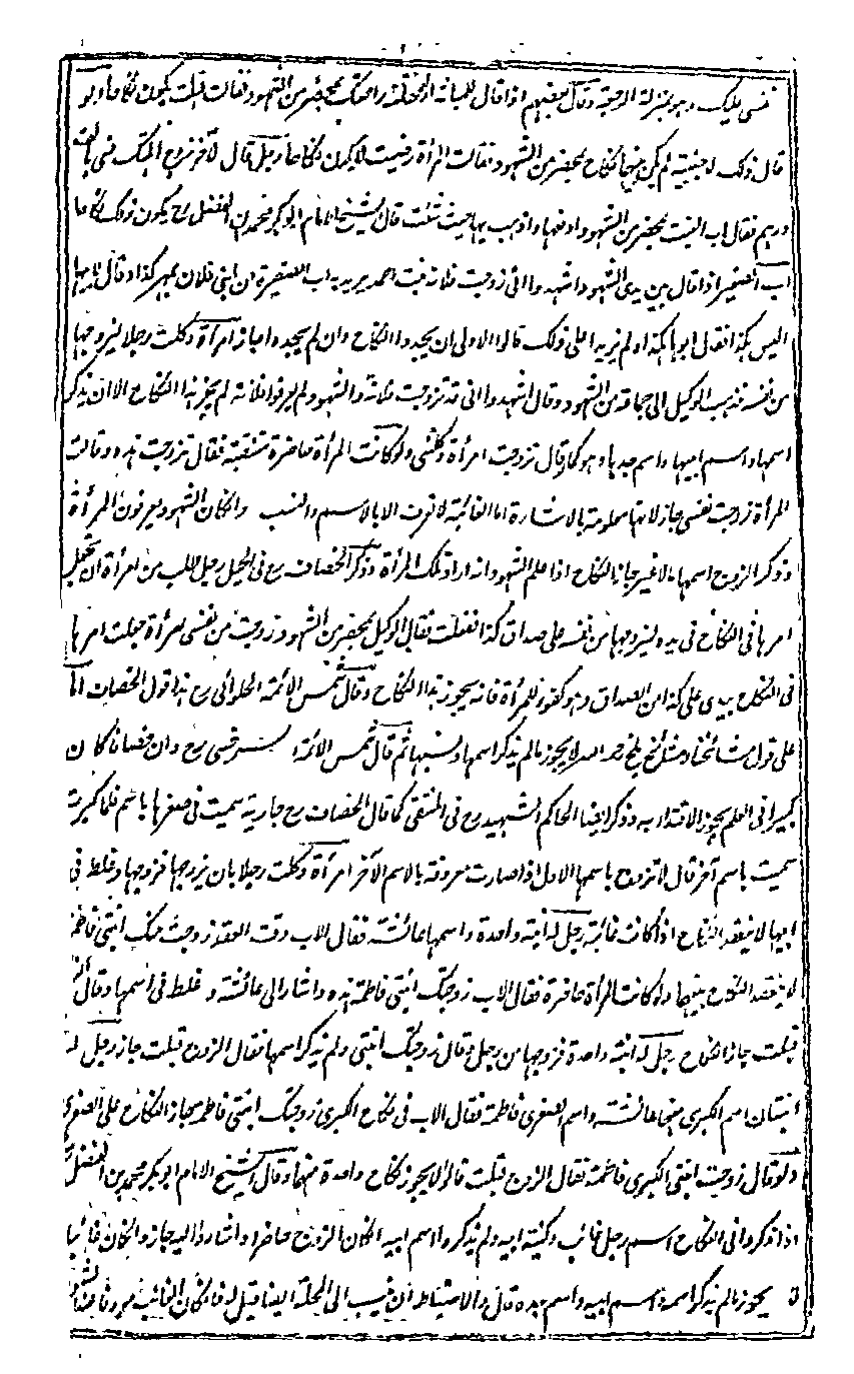 نفسى عليك وهو بمنزلة الرجعة وقال بعضهم اذا قال للمبانة او المختلعة راجعتك بمحضر من الشهود فقالت قبلت يكون نكاحا ولو
قال ذلك لاجنبية لم يكن بينهما نكاح بمحضر من الشهود فقالت المرأة رضيت لا يكون نكاحا رجل قال لآخر زوج ابنتك منى بالف
درهم فقال اب البنت بمحضر من الشهود ادفعها واذهب بها حيث شئت قال الشيخ الامام ابو بكر محمد بن الفضل رح يكون ذلك نكاحا
اب الصغير اذا قال بين يدى الشهود اشهدوا انى زوجت فلانة بنت احمد يريد به اب الصغيرة من ابنى فلان بمهر كذا وقال لابيها
اليس هكذا فقال ابوها هكذا ولم يزيدا على ذلك قالوا الاولى ان يجددا النكاح وان لم يجددا جاز امرأة وكلت رجلا ليزوجها
من نفسه فذهب الوكيل الى جماعة من الشهود وقال اشهدوا انى قد تزوجت فلانة والشهود لم يعرفوا فلانة لم يجز هذا النكاح الا ان يذكر
اسمها واسم ابيها واسم جدها وهو كما لو قال تزوجت امرأة وكلتنى ولو كانت المرأة حاضرة متنقبة فقال تزوجت هذه وقالت
المرأة زوجت نفسى جاز لانها معلومة بالاشارة اما الغائبة لا تعرف الا بالاسم والنسب وان كان الشهود يعرفون المرأة
وذكر الزوج اسمها لا غير جاز النكاح اذا علم الشهود انه اراد تلك المرأة وذكر الخصاف رح فى الحيل رجل طلب من امرأة ان تجعل
امرها فى النكاح فى يده ليزوجها من نفسه على صداق كذا ففعلت فقال الوكيل بمحضر من الشهود زوجت من نفسى امرأة جعلت امرها
فى النكاح بيدى على كذا من الصداق وهو كفو للمرأة فانه يجوز هذا النكاح وقال شمس الائمة الحلوائى رح هذا قول الخصاف اما
على قول مشائخنا ومشائخ بلخ رحمهم الله لا يجوز ما لم يذكر اسمها ونسبها ثم قال شمس الائمة السرخسى رح وان خصافا كان
كبيرا فى العلم يجوز الاقتداء به وذكر ايضا الحاكم الشهيد رح فى المنتقى كما قال الخصاف رح جارية سميت فى صغرها باسم فلما كبرت
سميت باسم آخر قال لا تزوج باسمها الاول اذا صارت معروفة بالاسم الآخر امرأة وكلت رجلا بان يزوجها فزوجها وغلط فى
ابيها لا ينعقد النكاح اذا كانت غائبة رجل له ابنة واحدة واسمها عائشة فقال الاب وقت العقد زوجت منك ابنتى فاطمة
لا ينعقد النكاح بينهما ولو كانت المرأة حاضرة فقال الاب زوجتك ابنتى فاطمة هذه واشار الى عائشة وغلط فى اسمها وقال الزوج
قبلت جاز النكاح رجل له ابنة واحدة فزوجها من رجل وقال زوجتك ابنتى ولم يذكر اسمها فقال الزوج قبلت جاز رجل له
ابنتان اسم الكبرى منهما عائشة واسم الصغرى فاطمة فقال الاب فى نكاح الكبرى زوجتك ابنتى فاطمة جاز النكاح على الصغرى
ولو قال زوجت ابنتى الكبرى فاطمة فقال الزوج قبلت قالوا لا يجوز نكاح واحدة منهما وقال الشيخ الامام ابو بكر محمد بن الفضل رح
اذا ذكروا فى النكاح اسم رجل غائب وكنية ابيه ولم يذكروا اسم ابيه ان كان الزوج حاضرا واشاروا اليه جاز وان كان غائبا
لا يجوز ما لم يذكر اسمه واسم ابيه واسم جده قال والاحتياط ان ينسب الى المحلة ايضا قيل له فان كان الغائب معروفا عند الشهود